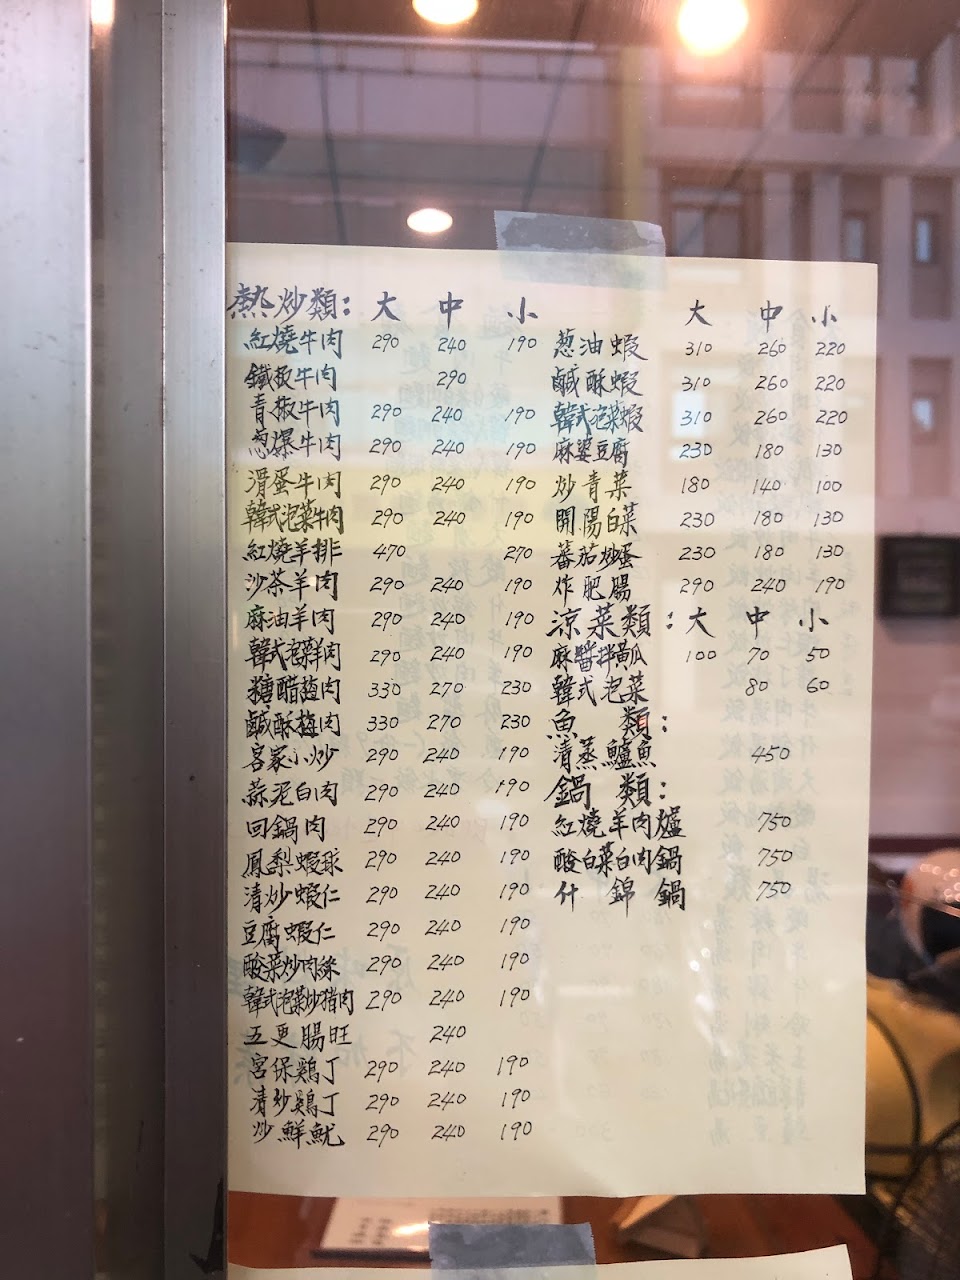 熱炒類: 大 中 小
紅燒牛肉 290 240 190
鐵板牛肉 290
青椒牛肉 290 240 190
葱爆牛肉 290 240 190
滑蛋牛肉 290 240 190
韓式泡菜牛肉 290 240 190
紅燒羊排 470 270
沙茶羊肉 290 240 190
麻油羊肉 290 240 190
韓式泡菜羊肉 290 240 190
糖醋梅肉 330 270 230
鹹酥梅肉 330 270 230
客家小炒 290 240 190
蒜泥白肉 290 240 190
回鍋肉 290 240 190
鳳梨蝦球 290 240 190
清炒蝦仁 290 240 190
豆腐蝦仁 290 240 190
酸菜炒肉絲 290 240 190
韓式泡菜炒豬肉 290 240 190
五更腸旺 240
宮保鷄丁 290 240 190
清炒鷄丁 290 240 190
炒鮮魷 290 240 190
大 中 小
葱油蝦 310 260 220
鹹酥蝦 310 260 220
韓式泡菜蝦 310 260 220
麻婆豆腐 230 180 130
炒青菜 180 140 100
開陽白菜 230 180 130
蕃茄炒蛋 230 180 130
炸肥腸 290 240 190
涼菜類: 大 中 小
麻醬拌黃瓜 100 70 50
韓式泡菜 80 60
魚類:
清蒸鱸魚 450
鍋類:
紅燒羊肉爐 750
酸白菜白肉鍋 750
什錦鍋 750